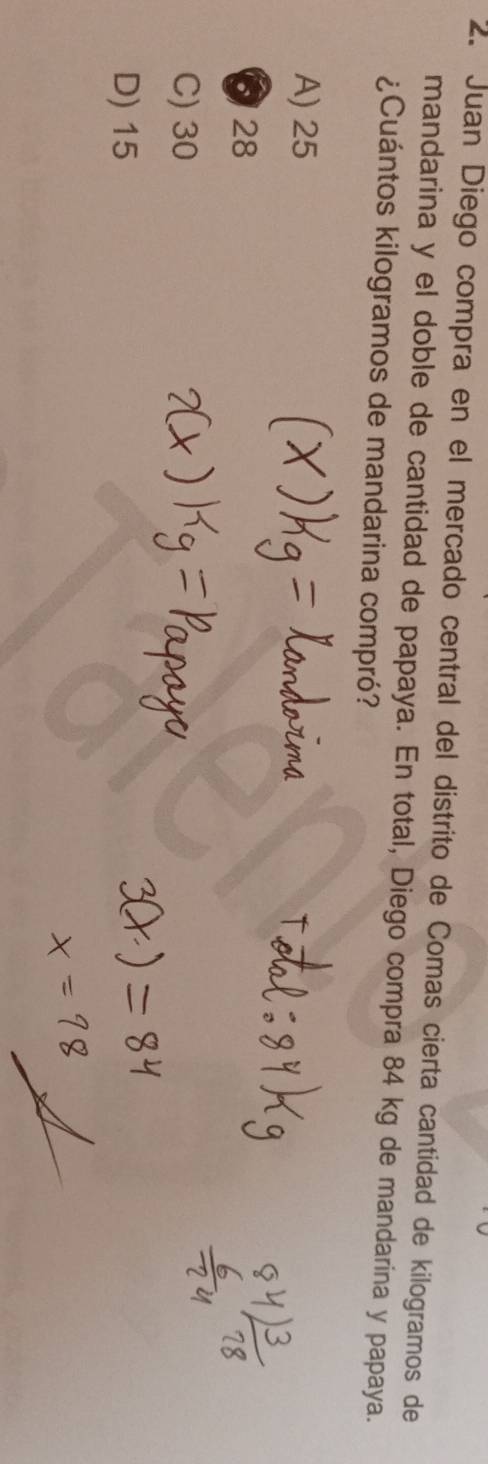 2. Juan Diego compra en el mercado central del distrito de Comas cierta cantidad de kilogramos de
mandarina y el doble de cantidad de papaya. En total, Diego compra 84 kg de mandarina y papaya.
¿Cuántos kilogramos de mandarina compró?
A) 25
28
C) 30
D) 15
(x) Kg = Mandarina
2(x) Kg = Papaya
Total: 84 Kg
3(x) = 84
x = 28
84 3
6 28
24
Talento